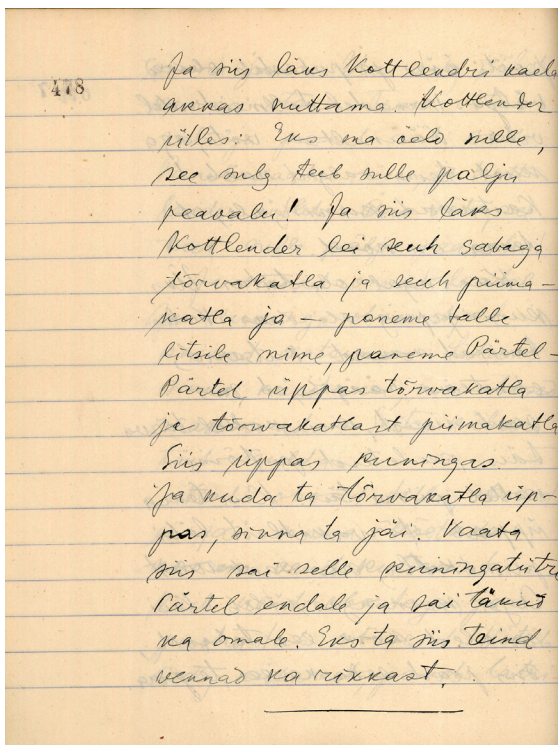 478
Ja siis läks Kottlendris kaela
akkas nuttama. Kottlender
ütles: Eks ma öeld sulle,
see sulg teeb sulle palju
peavalu! Ja siis läks
Kottlender lei seuh sabaga
tõrvakatla ja seuh piima-
katla ja – paneme talle
litsile nime, paneme Pärtel –
Pärtel üppas tõrvakatla
ja tõrvakatlast piimakatla
Siis üppas kuningas.
Ja kuda ta tõrvakatla üp-
pas, sinna ta jäi. Vaata
siis sai selle kuningatütre
Pärtel endale ja sai täkud
ka omale. Eks ta siis teind
vennad ka rikkast.